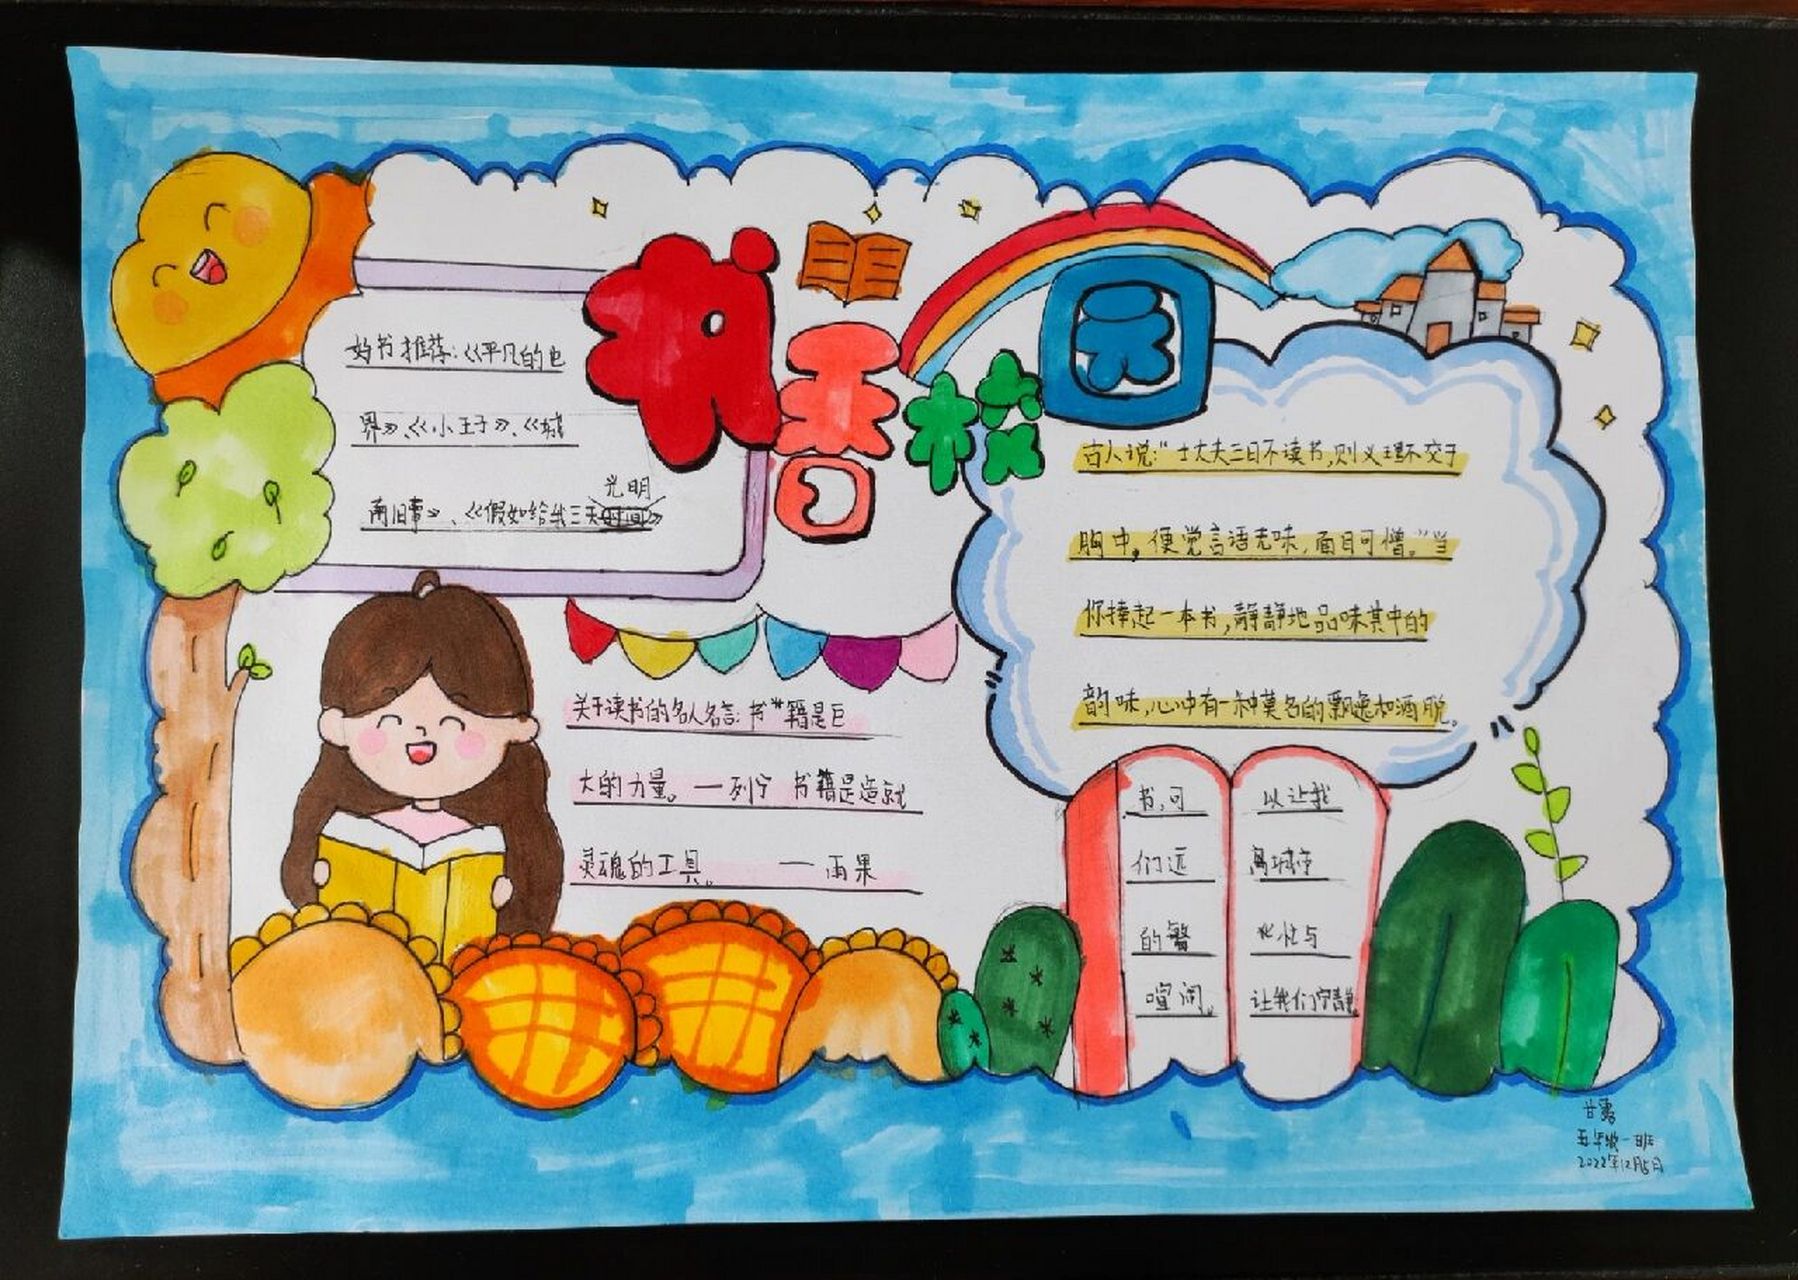 书香校园
好书推荐:《平凡的世
界》、《小王子》、《城
南旧事》、《假如给我三天光明》
关于读书的名人名言:书籍是巨
大的力量。—列宁 书籍是造就
灵魂的工具。 —雨果
古人说:“士大夫三日不读书,则义理不交于
胸中,便觉言语无味,面目可憎。”当
你捧起一本书,静静地品味其中的
韵味,心中有一种莫名的飘逸和洒脱。
书,可 以让我
们远 离城市
的繁 华性与
喧闹。 让我们宁静。
甘露
五年级一班
2022年12月5日